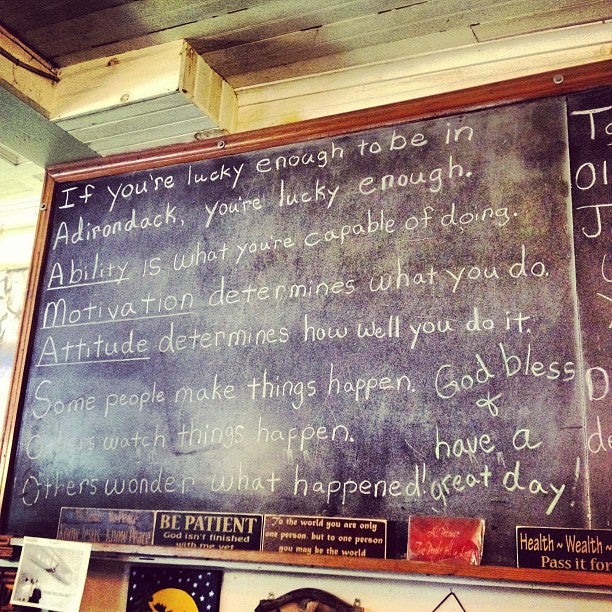 If you're lucky enough to be in
Adirondack, you're lucky enough.
Ability is what you're capable of doing.
Motivation determines what you do.
Attitude determines how well you do it.
Some people make things happen.
Others watch things happen.
Others wonder what happened!
God bless
&
have a
great day!
BE PATIENT
God isn't finished
with me yet
To the world you are only
one person, but to one person
you may be the world
Health ~ Wealth ~
Pass it for